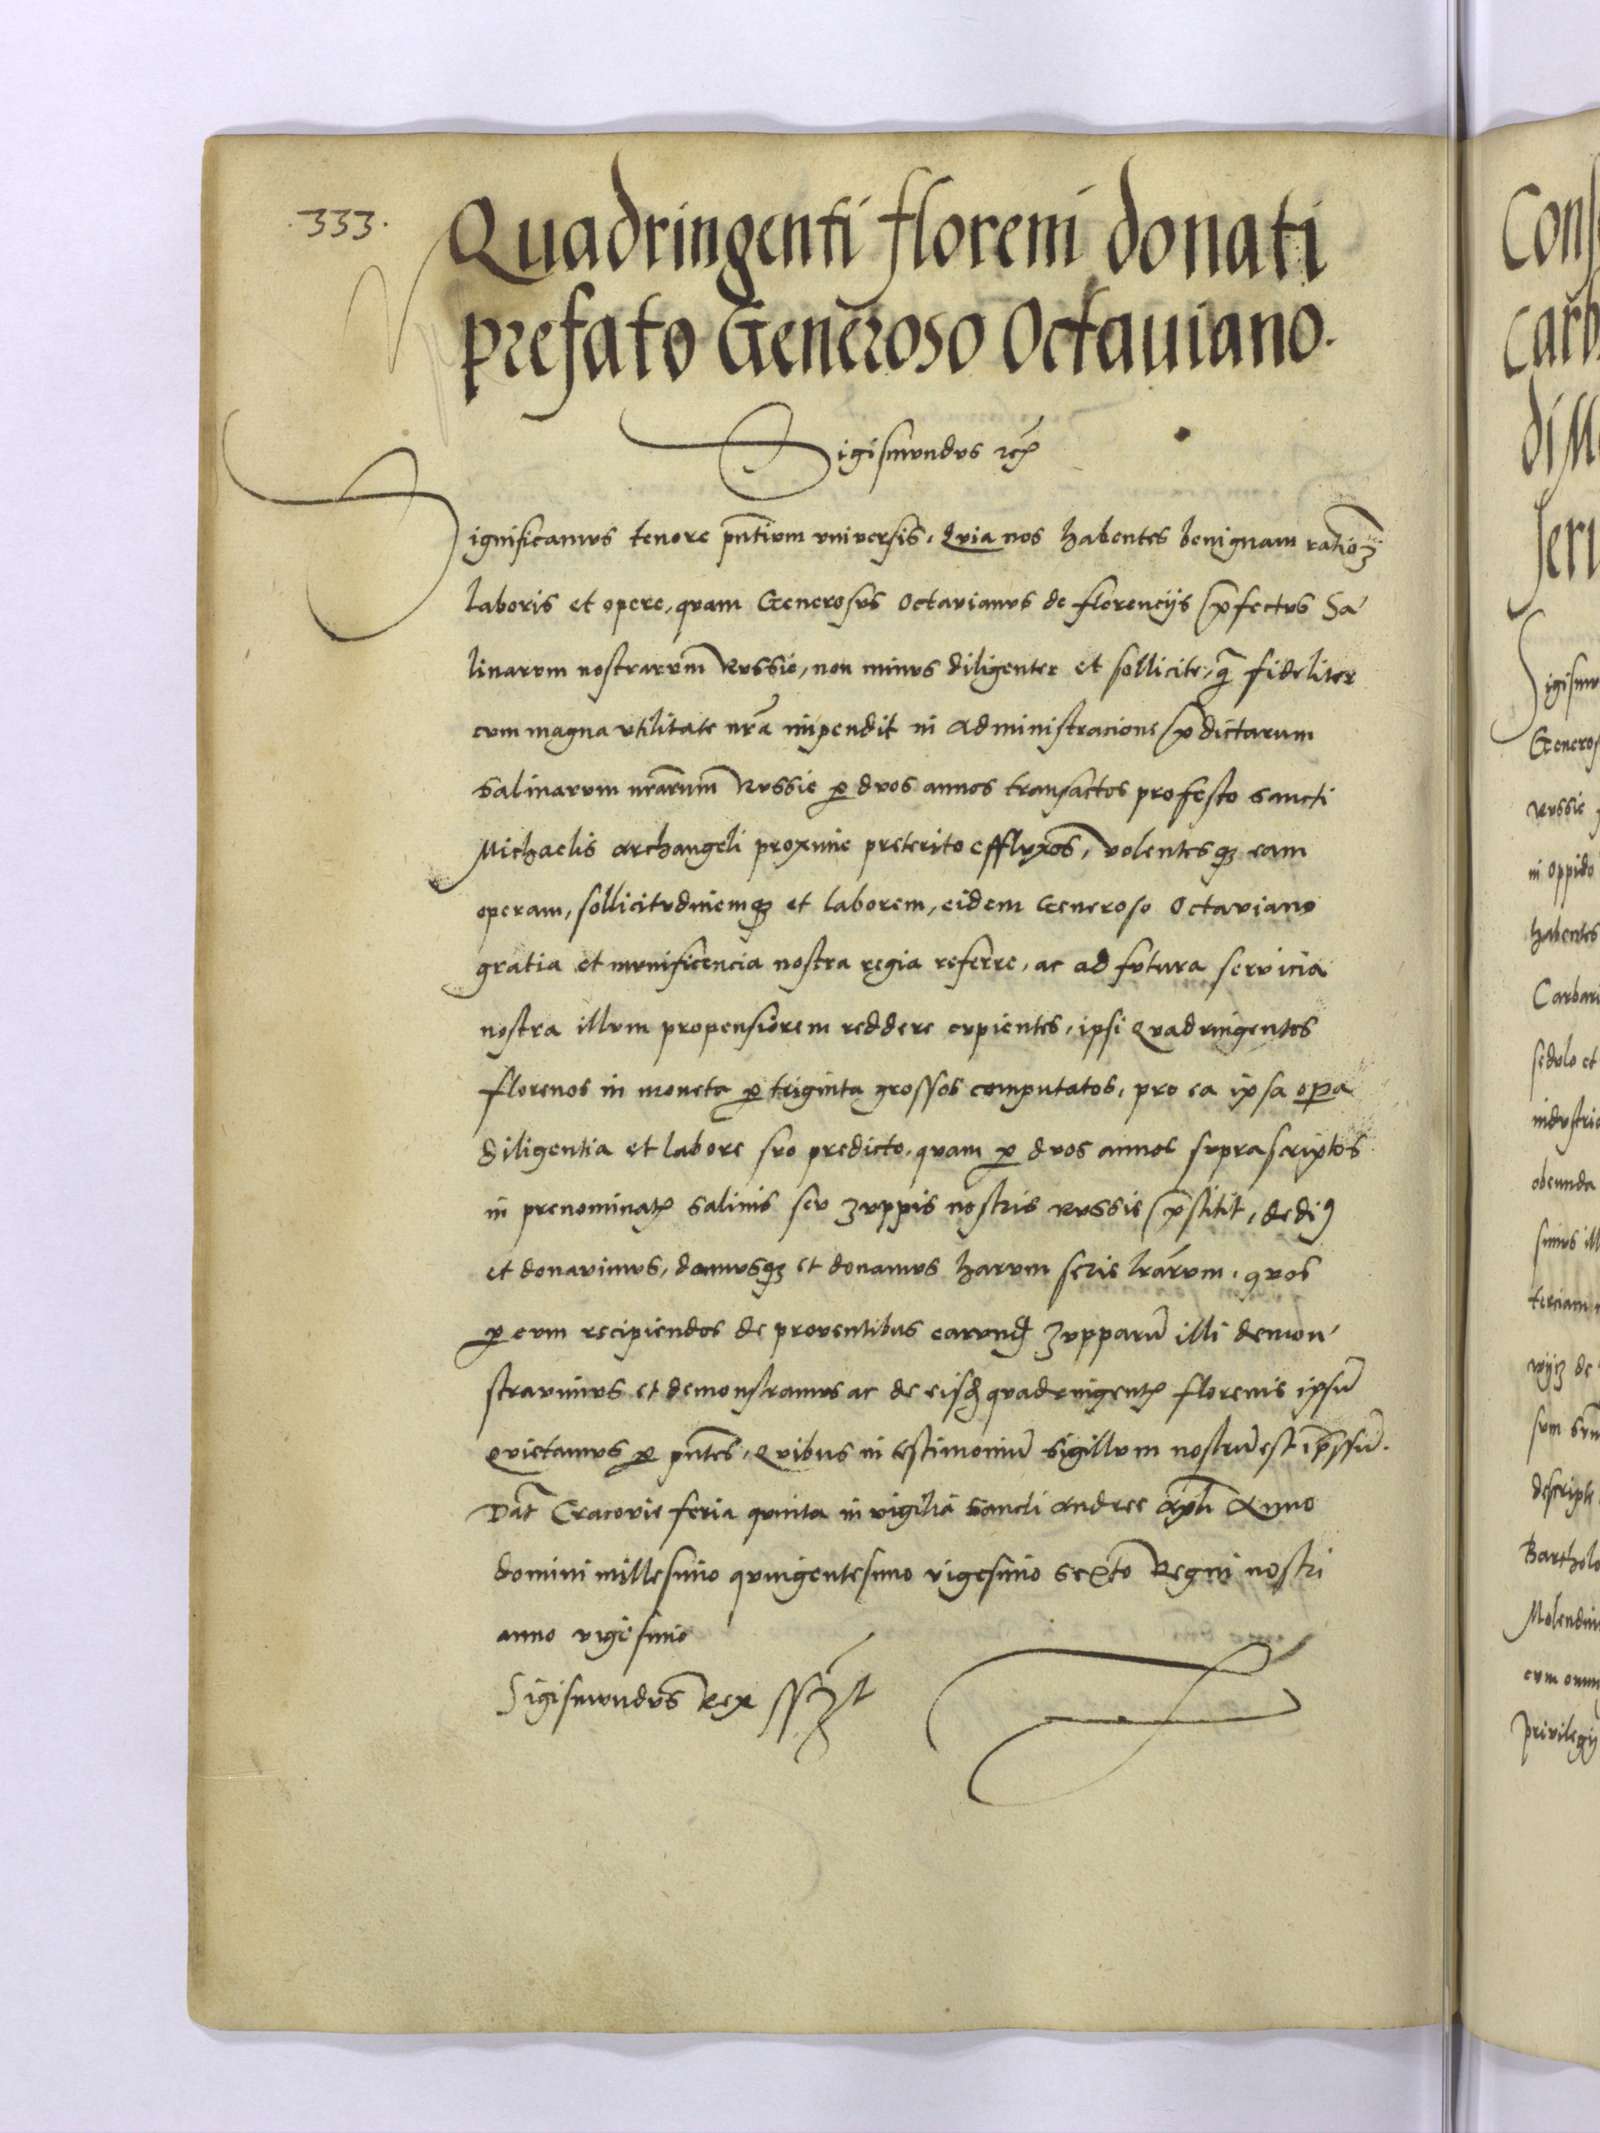 .333.
Quadringenti floreni donati
prefato Generoso Octauiano.
Sigismundus rex̃
Significamus tenore pñtium vniuersis, Quia nos habentes benignam ratioꝫ
laboris et opere, quam Generosus Octauianus de florencijs p̃fectus Sa-
linarum nostrarum Russie, non minus diligenter et sollicite, q̃ fideliter
cum magna vtilitate nr̃a impendit in administracione p̃dictarum
salinarum nr̃arum Russie ꝑ duos annos transactos pro festo sancti
Michaelis archangeli proxime preterito effluxos, volentesqꝫ eam
operam, sollicitudinemqꝫ et laborem, eidem Generoso Octauiano
gratia et munificencia nostra regia referre, ac ad futura seruicia
nostra illum propensiorem reddere cupientes, ipsi Quadringentos
florenos in moneta ꝑ triginta grossos computatos, pro ea ipsa oꝑa
diligentia et labore suo predicto, quam ꝑ duos annos suprascriptos
in prenominatꝭ salinis seu zuppis nostris Russie p̃stitit, dediꝰ
et donauimus, damusqꝫ et donamus harum serie lr̃arum. quos
ꝑ eum recipiendos de prouentibus earund̃ zupparũ illi demon-
strauimus et demonstramus ac de eisd̃ quadringentꝭ florenis ipsũ
quietamus ꝑ pñtes, Quibus in testimoniũ sigillum nostrũ est imp̃ssũ.
Dat̃ Cracouie feria quinta in vigilia sancti Andree apl̃i Anno
domini millesimo quingentesimo vigesimo sexto Regni nostri
anno vigesimo
Sigismundus Rex sszt
Cons
carb
di M
seri
Sigismu
Generos
Russie
in oppido
habentes
Carbari
sedulo et
industria
obeunda
simus ill
terciam
wijꝫ de
descripte
Bartholo
Molendin
cum omn
priuilegij